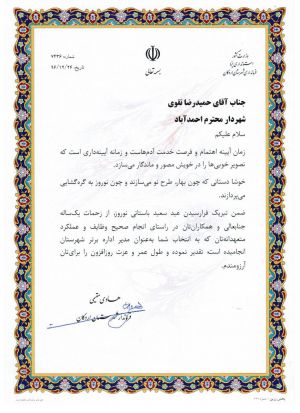 وزارت کشور
استانداری یزد
فرمانداری شهرستان اردکان
بسمه تعالی
شماره: ۷۴۳۶
تاریخ: ۹۶/۱۲/۲۶
جناب آقای حمیدرضا تقوی
شهردار محترم احمدآباد
سلام علیکم
زمان آیینه اهتمام و فرصت خدمت آدم‌هاست و زمانه آیینه‌داری است که
تصویر خوبی‌ها را در خویش مصور و ماندگار می‌سازد.
خوشا دستانی که چون بهار، طرح نو می‌سازند و چون نوروز به گره‌گشایی
می‌پردازند.
ضمن تبریک فرارسیدن عید سعید باستانی نوروز، از زحمات یک‌ساله
جنابعالی و همکاران‌تان در راستای انجام صحیح وظایف و عملکرد
متعهدانه‌تان که به انتخاب شما به‌عنوان مدیر اداره برتر شهرستان
انجامیده است، تقدیر نموده و طول عمر و عزت روزافزون را برای‌تان
آرزومندم.
هادی مقیمی
فرماندار شهرستان اردکان